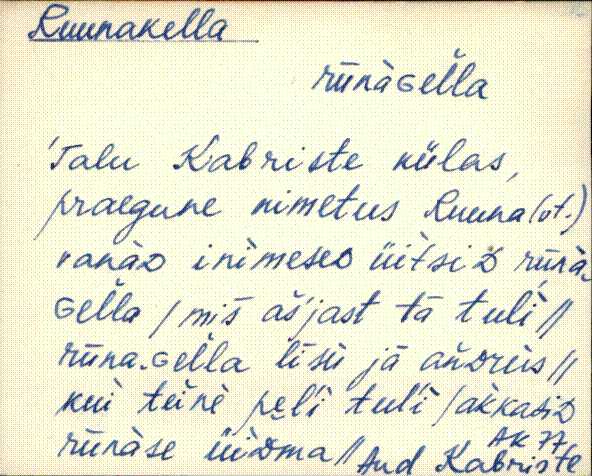 Ruunakella
rūnàɢel̆la
Talu Kabriste külas,
praegune nimetus Ruuna (vt.)
vanàᴅ inìmeseᴅ üìtsiᴅ rūnà-
ɢel̆la / mis̄ aš́jast tā tulì //
rūna-ɢel̆la līsù jà añdrès //
kui teìnè pel'i tul'i / akkasiᴅ
rūnàse üìᴅma //
And Kabriste
AK 77